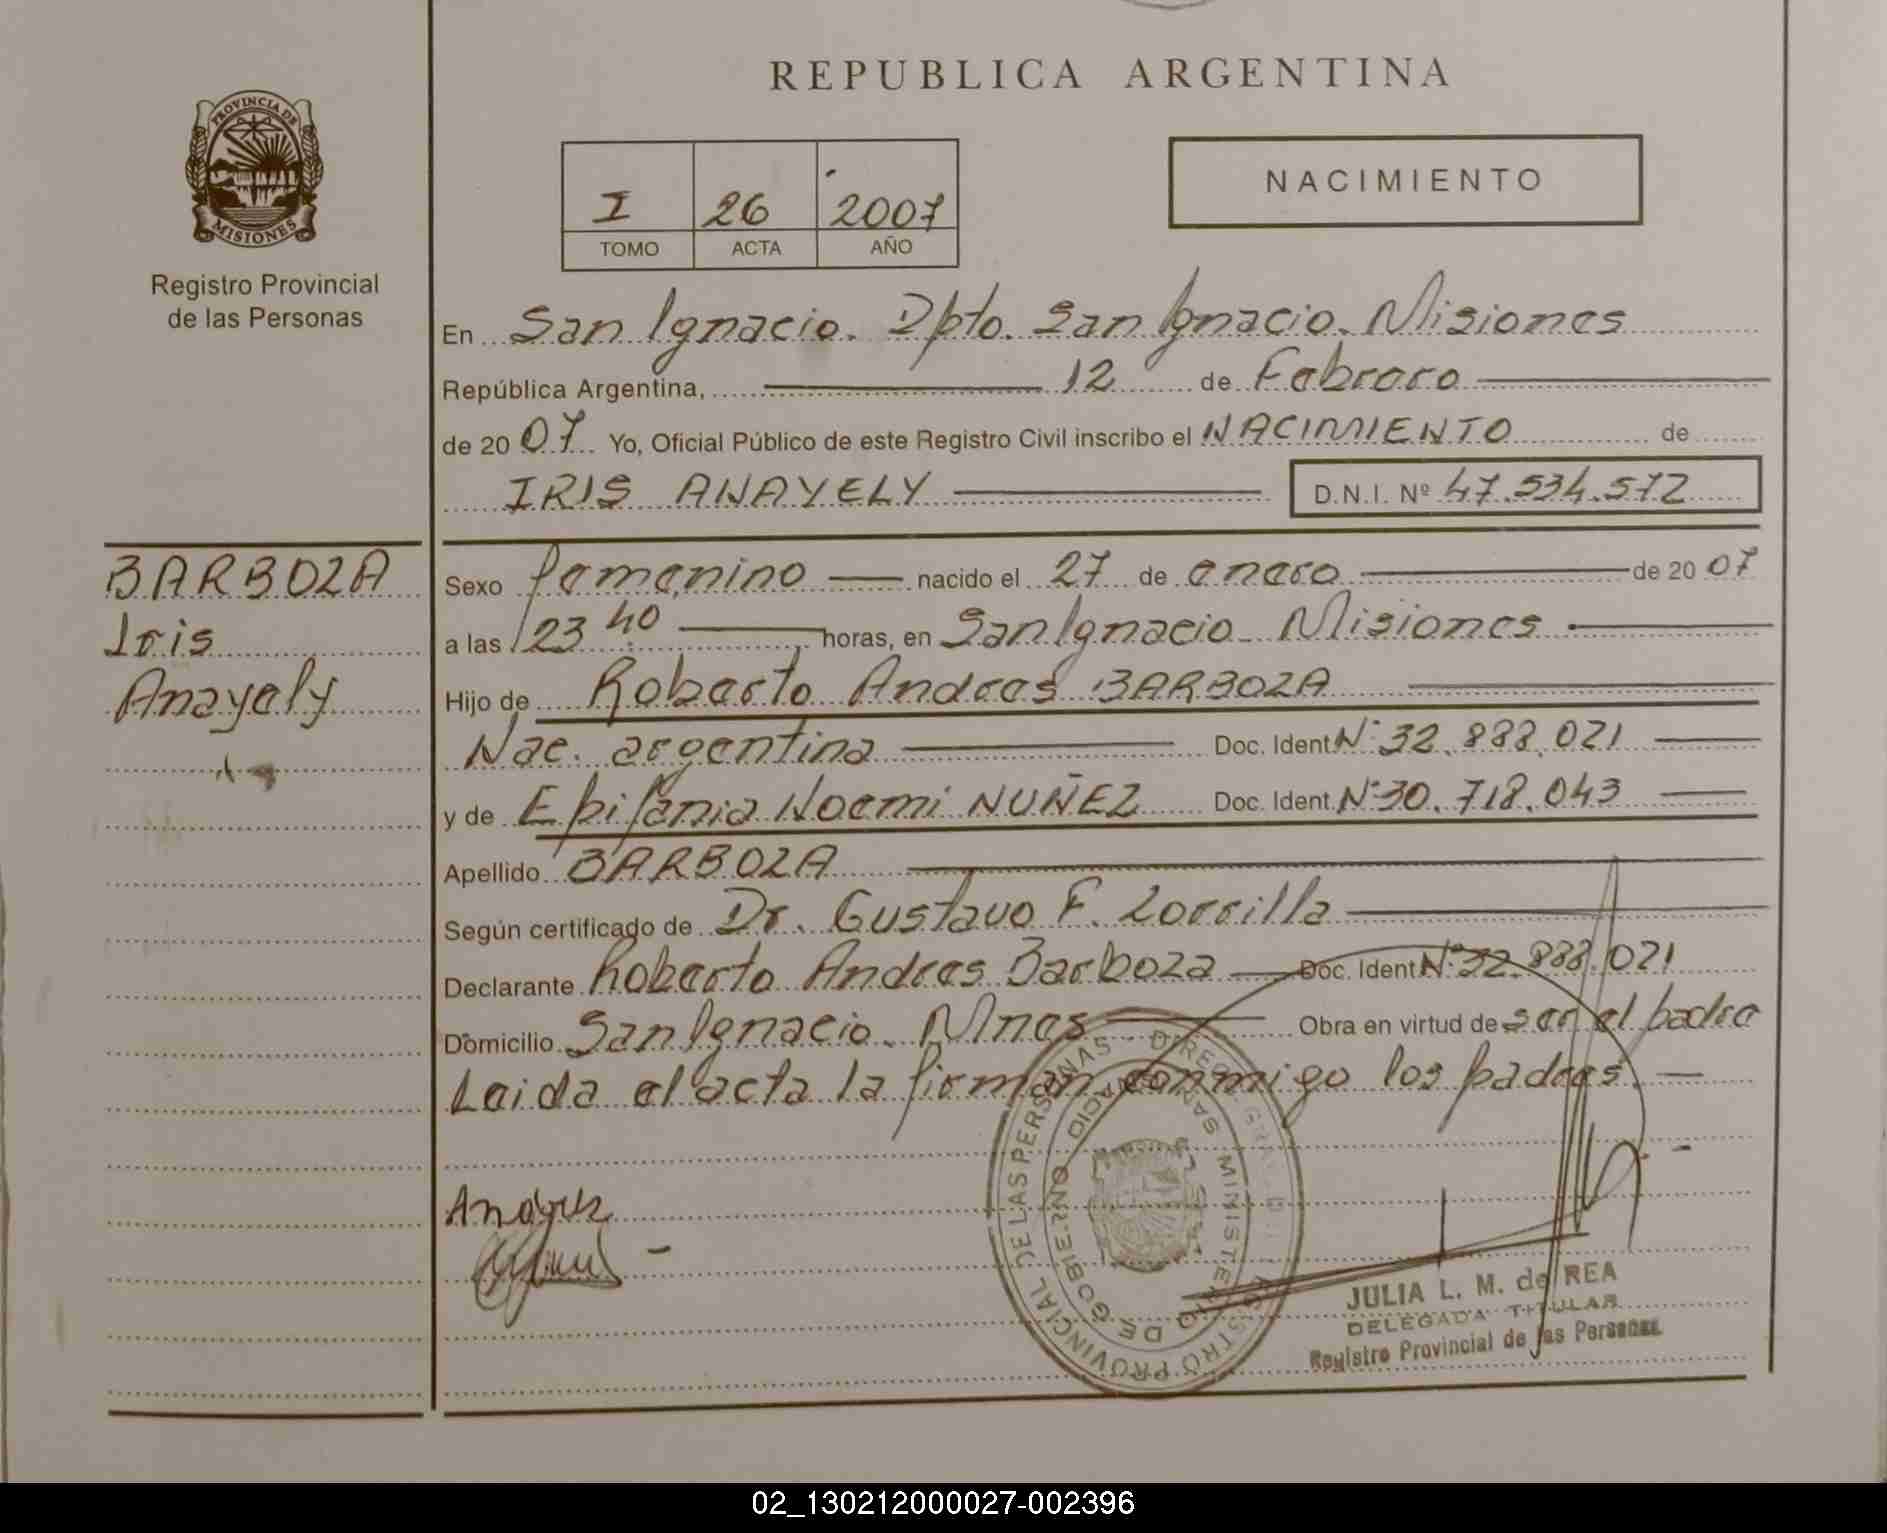 REPUBLICA ARGENTINA
PROVINCIA DE MISIONES
Registro Provincial
de las Personas
I 26 2007
TOMO ACTA AÑO
NACIMIENTO
En San Ignacio. Dpto. San Ignacio. Misiones
República Argentina, 12 de Febrero
de 20 07 Yo, Oficial Público de este Registro Civil inscribo el NACIMIENTO de
IRIS ANAYELY D.N.I. Nº 47.534.572
BARBOZA
Iris
Anayely
Sexo femenino nacido el 27 de enero de 20 07
a las 23 40 horas, en San Ignacio Misiones
Hijo de Roberto Andres BARBOZA
Nac. argentina Doc. Ident. Nº 32.888.021
y de Epifania Noemi NUÑEZ Doc. Ident. Nº 30.718.043
Apellido BARBOZA
Según certificado de Dr. Gustavo F. Zorrilla
Declarante Roberto Andres Barboza Doc. Ident. Nº 32.888.021
Domicilio San Ignacio. Mnes Obra en virtud de ser el padre
Leida el acta la firman conmigo los padres.
REGISTRO PROVINCIAL DE LAS PERSONAS
MINISTERIO DE GOBIERNO
JULIA L. M. de REA
DELEGADA TITULAR
Registro Provincial de las Personas
02_130212000027-002396